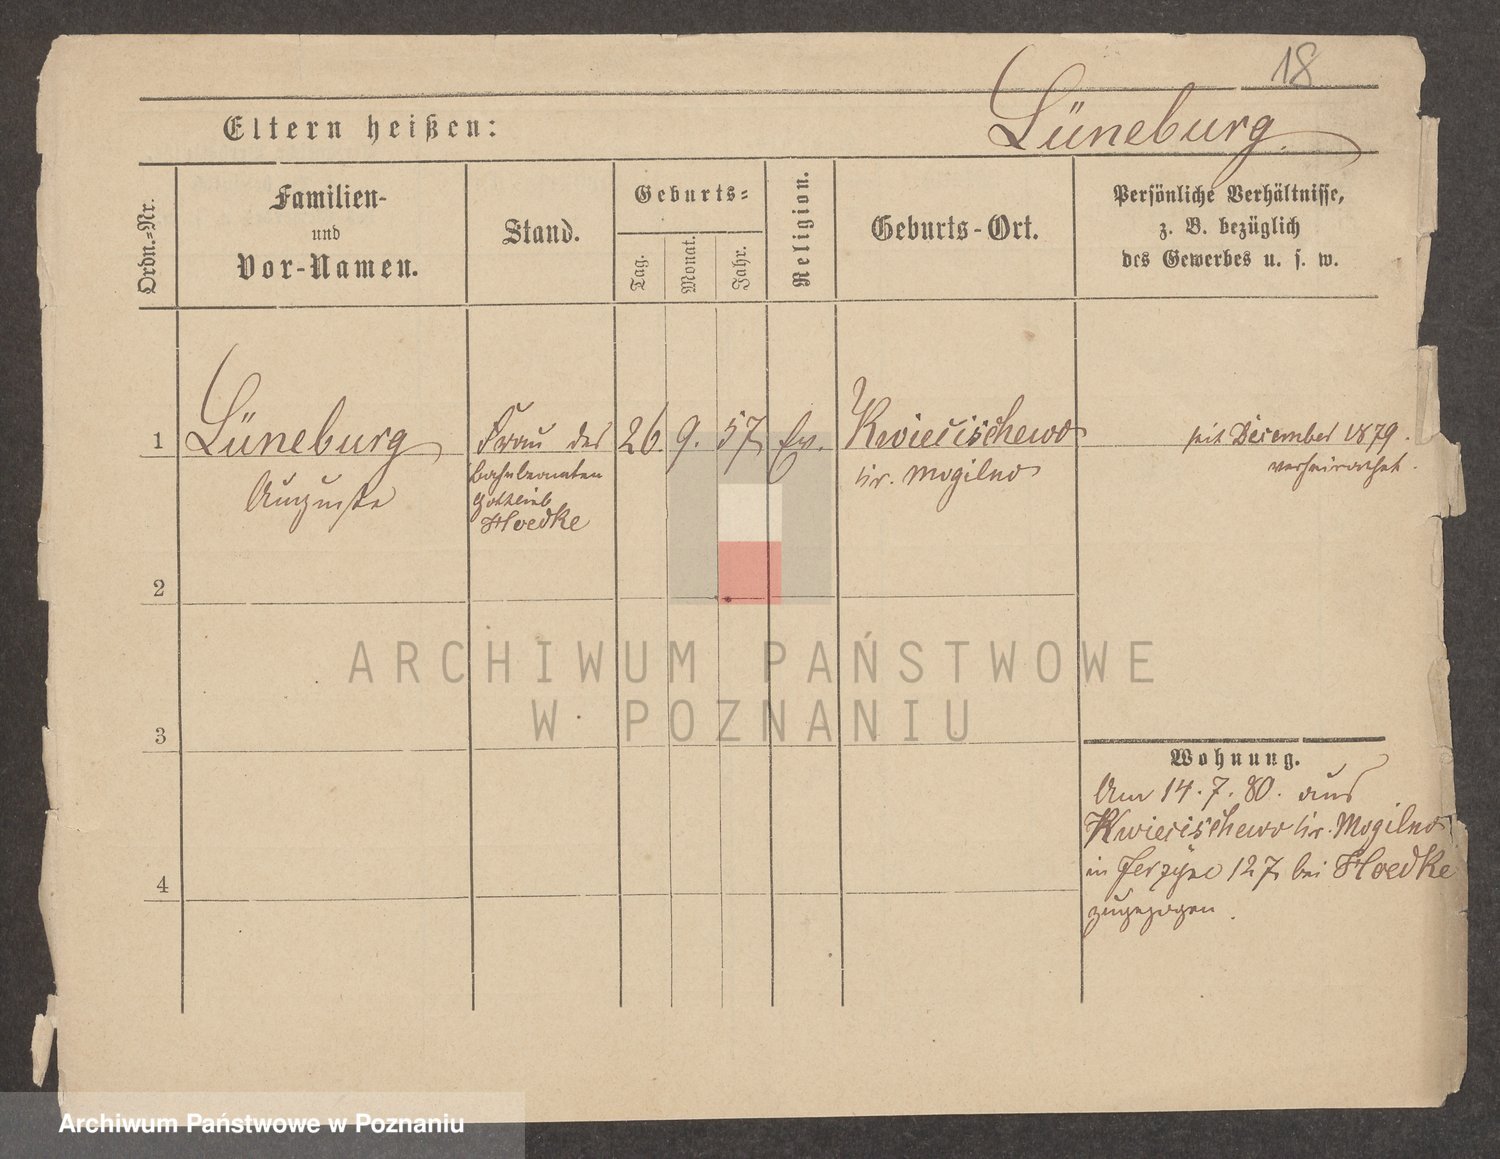 18
Eltern heißen:
Lüneburg
Ordn.=Nr.
Familien-
und
Vor-Namen.
Stand.
Geburts=
Tag.
Monat.
Jahr.
Religion.
Geburts-Ort.
Persönliche Verhältnisse,
z. B. bezüglich
des Gewerbes u. s. w.
1
Lüneburg
Auguste
Frau des
Bahnbeamten
Gottlieb
Hoedke
26.
9.
57
Ev.
Kwiecischewo
Kr. Mogilno
seit December 1879.
verheirathet.
2
3
4
ARCHIWUM PAŃSTWOWE
W POZNANIU
Wohnung.
Am 14.7.80. aus
Kwiecischewo Kr. Mogilno
in Jerzyce 127 bei Hoedke
zugezogen.
Archiwum Państwowe w Poznaniu